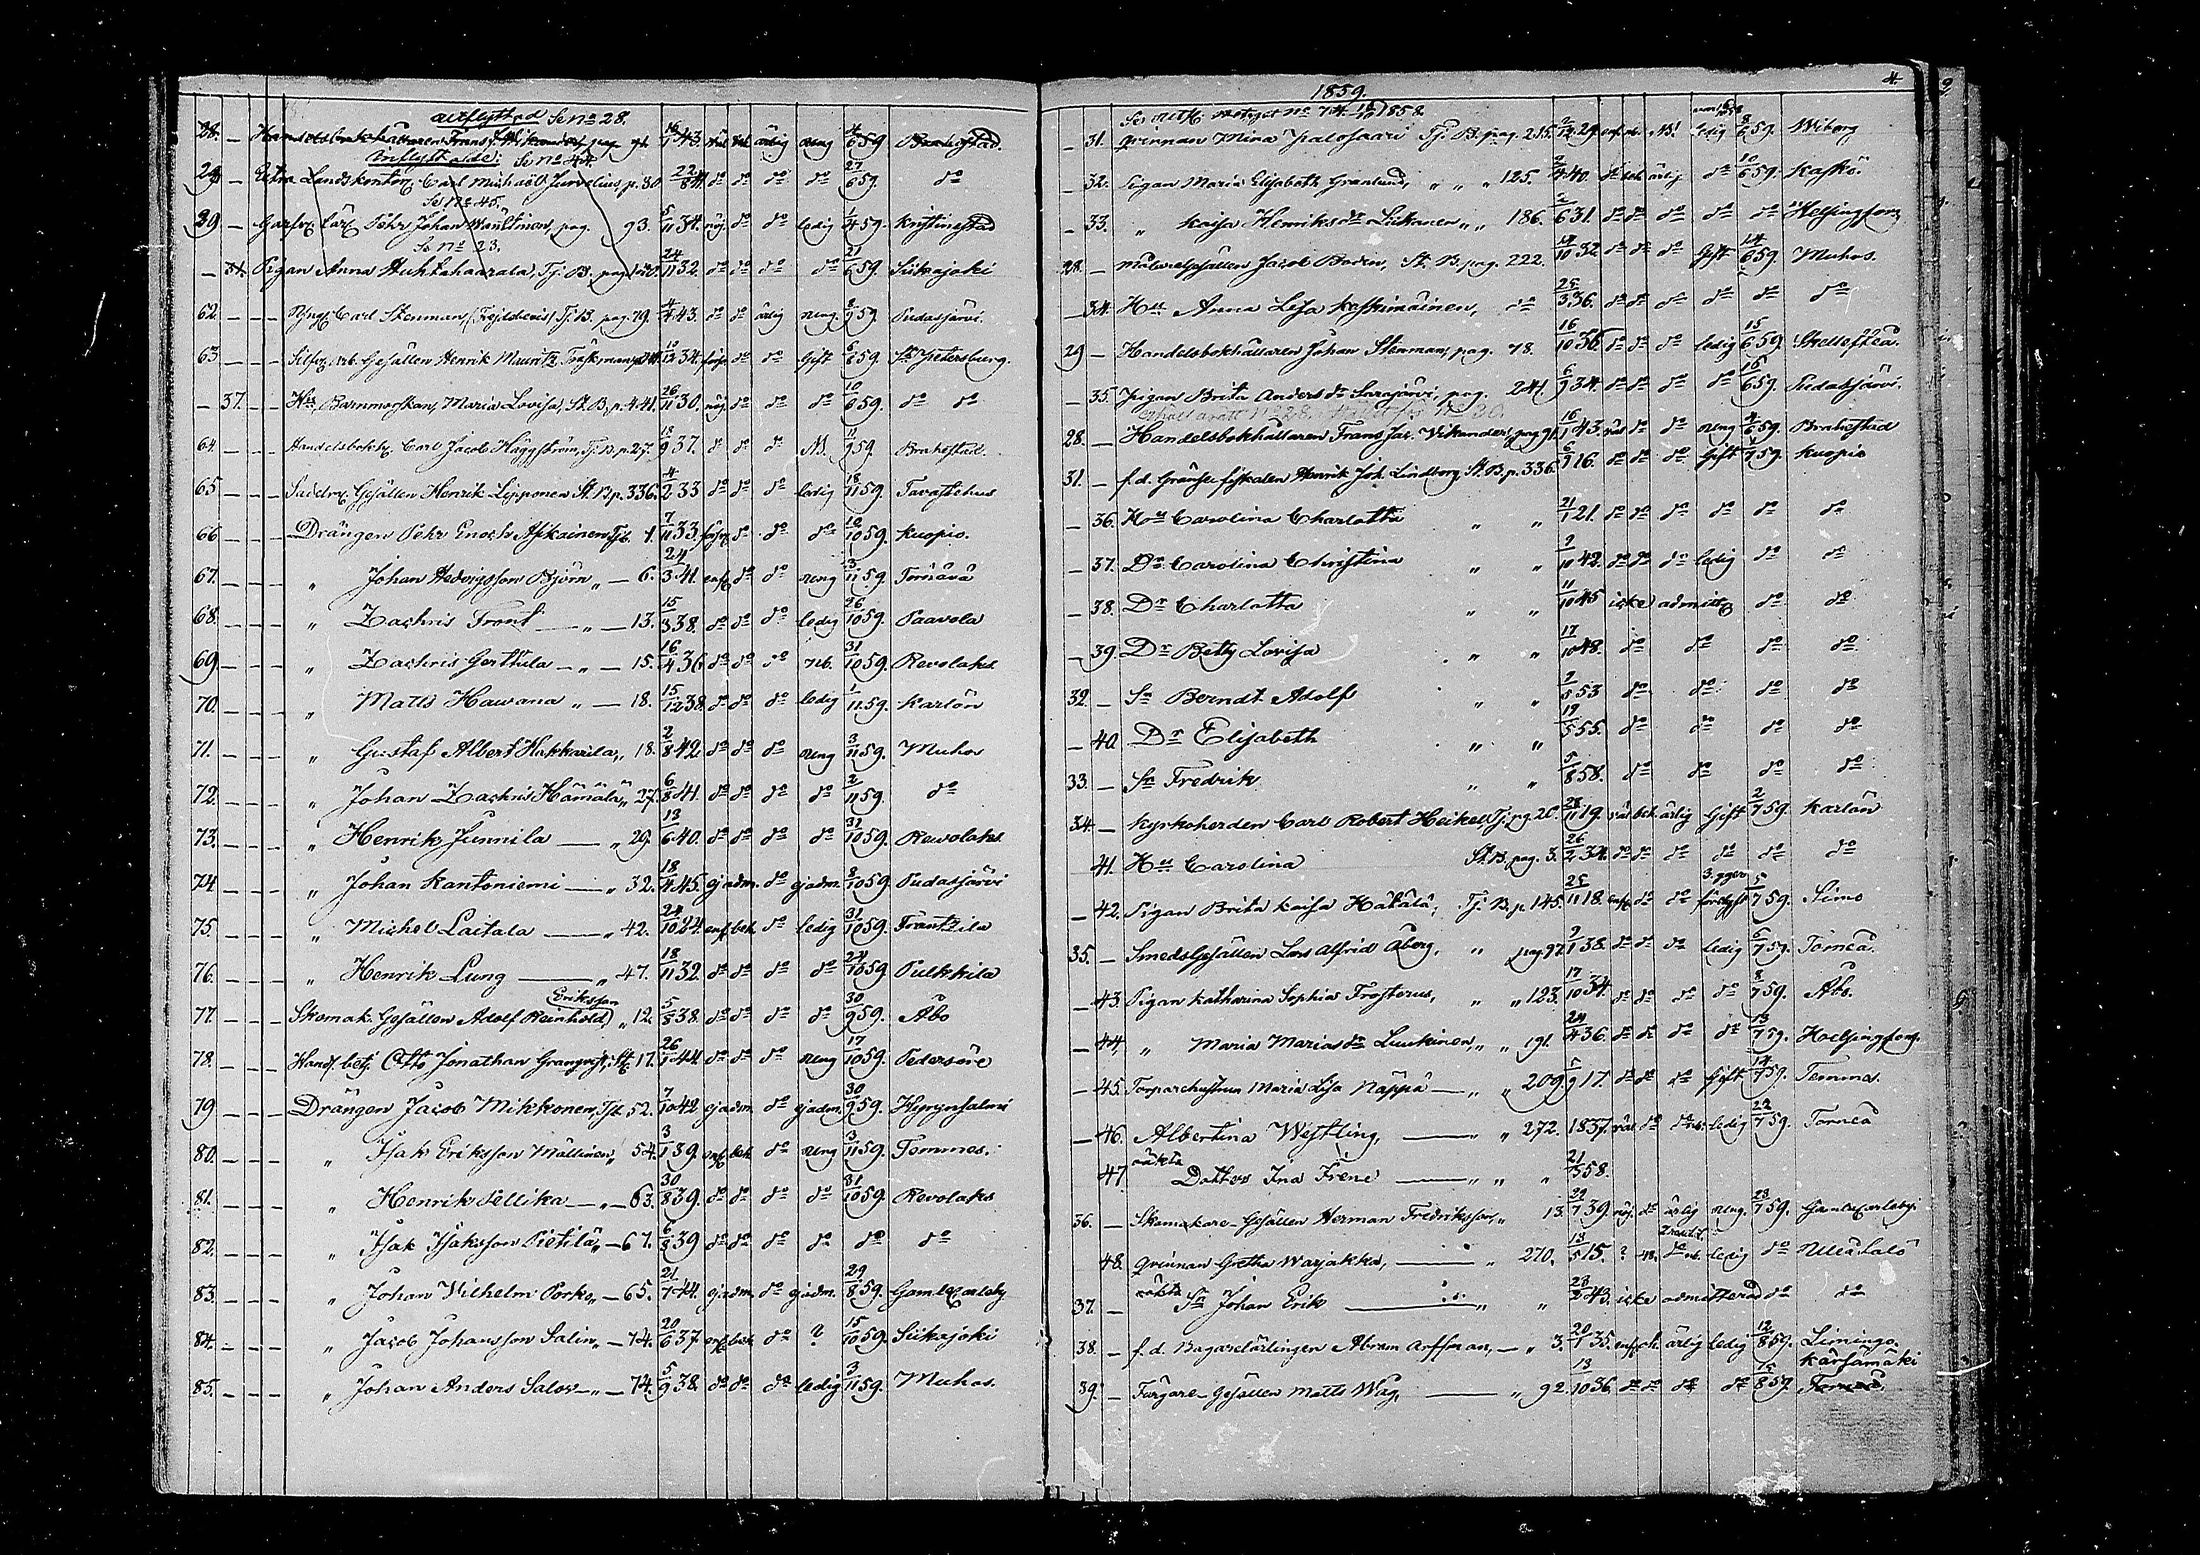 utflyttad Se No 28.
28. — Handelsbokhållaren Frans J. Wikander pag 91. 16/1 43. väl bek ärlig neng 4/6 59 Brahestad
Inflyttade: Se No 44.
29 — Extra Landskontor. Carl Michaël Jurvelius, p. 30 22/8 41 do do do do 27/6 59. do
Se No 45.
29 — Garfvar Lärl. Pehr Johan Wänttinen, pag. 93. 5/11 34. nöj. do do ledig 1/4 59. Kristinestad
Se No 23.
— 31. Pigan Anna Huhtahaarala, Tj. B. pag. 24/11 32. do do do do 21/6 59. Siikajoki
62. — — — Yngl. Carl Stenman, Tj. B. pag. 79. 4/4 43. do do ärlig neng. 8/9 59. Pudasjärvi.
63 — — — Silfver arb. Gesällen Henrik Mauritz Träskman 10/12 34. förs. do do Gift 6/6 59. St Petersburg.
— 37. — — Hu Barnmorskan, Maria Lovisa, St. B. p. 441. 26/11 30. nöj. do do do 10/6 59. do do
64. — — — Handelsbokh. Carl Jacob Häggström, Tj. B. p. 27. 18/9 37. do do do N. 11/9 59. Brahestad.
65 — — — Sadelm. Gesällen Henrik Lipponen St. B. p. 336. 4/2 33 do do do ledig 18/11 59. Tavastehus
66 — — — Drängen Pehr Enoch Askainen Tjb. 1. 7/11 33. förs. do do do 10/10 59. Kuopio.
67. — — — " Johan Hedvigsson Björn " — 6. 24/3 41. enf. do do neng 3/11 59. Tornävä
68. — — — " Zachris Front — " — 13. 15/3 38. do do do ledig 26/10 59. Paavola
69 — — — " Zachris Gerttula — " — 15. 16/4 36 do do do nb. 31/10 59. Revolaks
70. — — — " Matts Hawana " — 18. 15/12 38. do do do ledig 1/11 59. Karlön
71. — — — " Gustaf Albert Hakkarila " 18. 2/8 42. do do do neng 3/11 59. Muhos
72. — — — " Johan Zachris Hämälä " 27. 6/8 41. do do do do 2/11 59. do
73. — — — " Henrik Junnila — " 29. 13/6 40. do do do do 31/10 59. Revolaks
74 — — — " Johan Kantoniemi — " 32. 18/4 45. ej adm. do ej adm. 8/10 59. Pudasjärvi
75. — — — " Michel Laitala — " 42. 24/10 24. enf. bek. do ledig 31/10 59. Frantzila
76. — — — " Henrik Lung — " 47. 18/11 32. do do do do 24/10 59 Pulkkila
77. — — — Skomak. Gesällen Adolf Reinhold Eriksson " 12. 5/8 38. do do do do 30/9 59. Åbo
78. — — — Handl. betj. Otto Jonathan Granqvist, St. 17. 26/1 44. do do do neng 17/10 59. Pedersöre
79 — — — Drängen Jacob Mikkonen, Tjb. 52. 7/10 42 ej adm. do ej adm. 30/9 59. Hyrynsalmi
80. — — — " Isak Eriksson Mällinen " 54. 3/1 39. enf. bek. do neng 3/11 59. Temmes.
81. — — — " Henrik Sellika — " — 63. 30/8 39. do do do do 31/10 59. Revolaks
82. — — — " Isak Isaksson Pietilä " — 67. 6/8 39 do do do do do do
83. — — — " Johan Wilhelm Pork " — 65. 21/7 44. ej adm. do ej adm. 29/8 59. Gamlacarleby
84. — — — " Jacob Johansson Salin " — 74. 20/6 37. enf. bek. do ? 15/10 59. Siikajoki
85. — — — " Johan Anders Salov — " — 74. 5/9 38. do do do ledig 3/11 59. Muhos.
4.
1859.
Se 1858
31. Qvinnan Mina Palosaari Tj. B. pag. 255. 2/12 29. enf. N.! ledig 8/6 59. Wiborg
— 32. Pigan Maria Elisabeth Granlund, " " " 125. 2/4 40. do bek ärlig do 10/6 59. Kaskö
— 33. " Kaisa Henriksdr Liikanen " " 186. 2/6 31. do do do do do Helsingfors
28. — Målare Gesällen Jacob Boden, St. B. pag. 222. 14/10 32. do do do Gift 14/6 59. Muhos.
— 34. Hu Anna Lisa Keskimäinen, do 25/3 36. do do do do do do
29 — Handelsbokhållaren Johan Stenman, pag. 78. 16/10 36 do do do ledig 15/6 59. Skellefteå.
— 35. Pigan Brita Andersdr Sarajärvi, pag. 241. 6/9 34. do do do do 16/6 59. Pudasjärvi.
28. — Handelsbokhållaren Frans Jac. Vikander, pag 91. 16/1 43. väl do do neng 4/6 59. Brahestad
31. — f. d. Gränse fiskalen Henrik Joh. Lindborg St. B. p. 336. 6/9 16. do do do Gift 1/7 59. Kuopio
— 36. Hu Carolina Charlotta " " 21/1 21. do do do do do do
— 37. Dr Carolina Christina " " 2/10 42. do do do ledig do do
— 38. Dr Charlotta " " 11/10 45 icke admitt. do do
— 39. Dr Betty Lovisa " " 17/10 48. do do do do
32. — Sn Berndt Adolf " " 2/5 53 do do do do
— 40. Dr Elisabeth " " 19/5 55. do do do do
33. — Sn Fredrik " " 5/8 58. do do do do
34. — Kyrkoherden Carl Robert Heikel, Tj. pg. 20. 28/11 19. väl bek. ärlig Gift 2/7 59. Karlön
41. Hu Carolina St. B. pag. 3. 26/2 34. do do do do do do
— 42. Pigan Brita Kaisa Hätälä, Tj. B. p. 145. 25/11 18. enf. do do 3. ggr förelyst 5/7 59. Simo
35. — Smeds Gesällen Lars Alfrid Åberg, " pag 97. 2/1 38. do do do ledig 6/7 59. Torneå.
— 43. Pigan Katharina Sophia Frosterus, " " 123. 17/10 34. do do do do 8/7 59. Åbo.
— 44. " Maria Mariasdr Luukinen, " " 191. 24/4 36. do do do do 13/7 59. Helsingfors.
— 45. Torparehustrun Maria Lisa Näppä — " " 209. 5/9 17. do do do Gift 14/7 59. Temmes.
— 46. Albertina Westling, — " " 272. 1837. väl do do nb. ledig 22/7 59. Torneå
47. oäkta Dotters Ina Irene — " " " 21/5 58.
36. — Skomakare-Gesällen Herman Fredriksson, " 13. 29/7 39. nöj. do ärlig neng. 23/7 59. Gamlacarleby.
48. Qvinnan Gretha Warjakka, — " 270. 13/5 15. ? nb. ledig do Uleåsalo
37. — oäkta Sn Johan Erik — " " 28/2 43. icke admitterad do do
38. — f. d. Bagarelärlingen Abram Arffman, — " 3. 20/1 35. enf. ärlig ledig 12/8 59. Limingo,
39. — Färgare-Gesällen Matts Wag, — " 92. 13/10 36. do do do do 15/8 59. Kärsämäki Torneå.